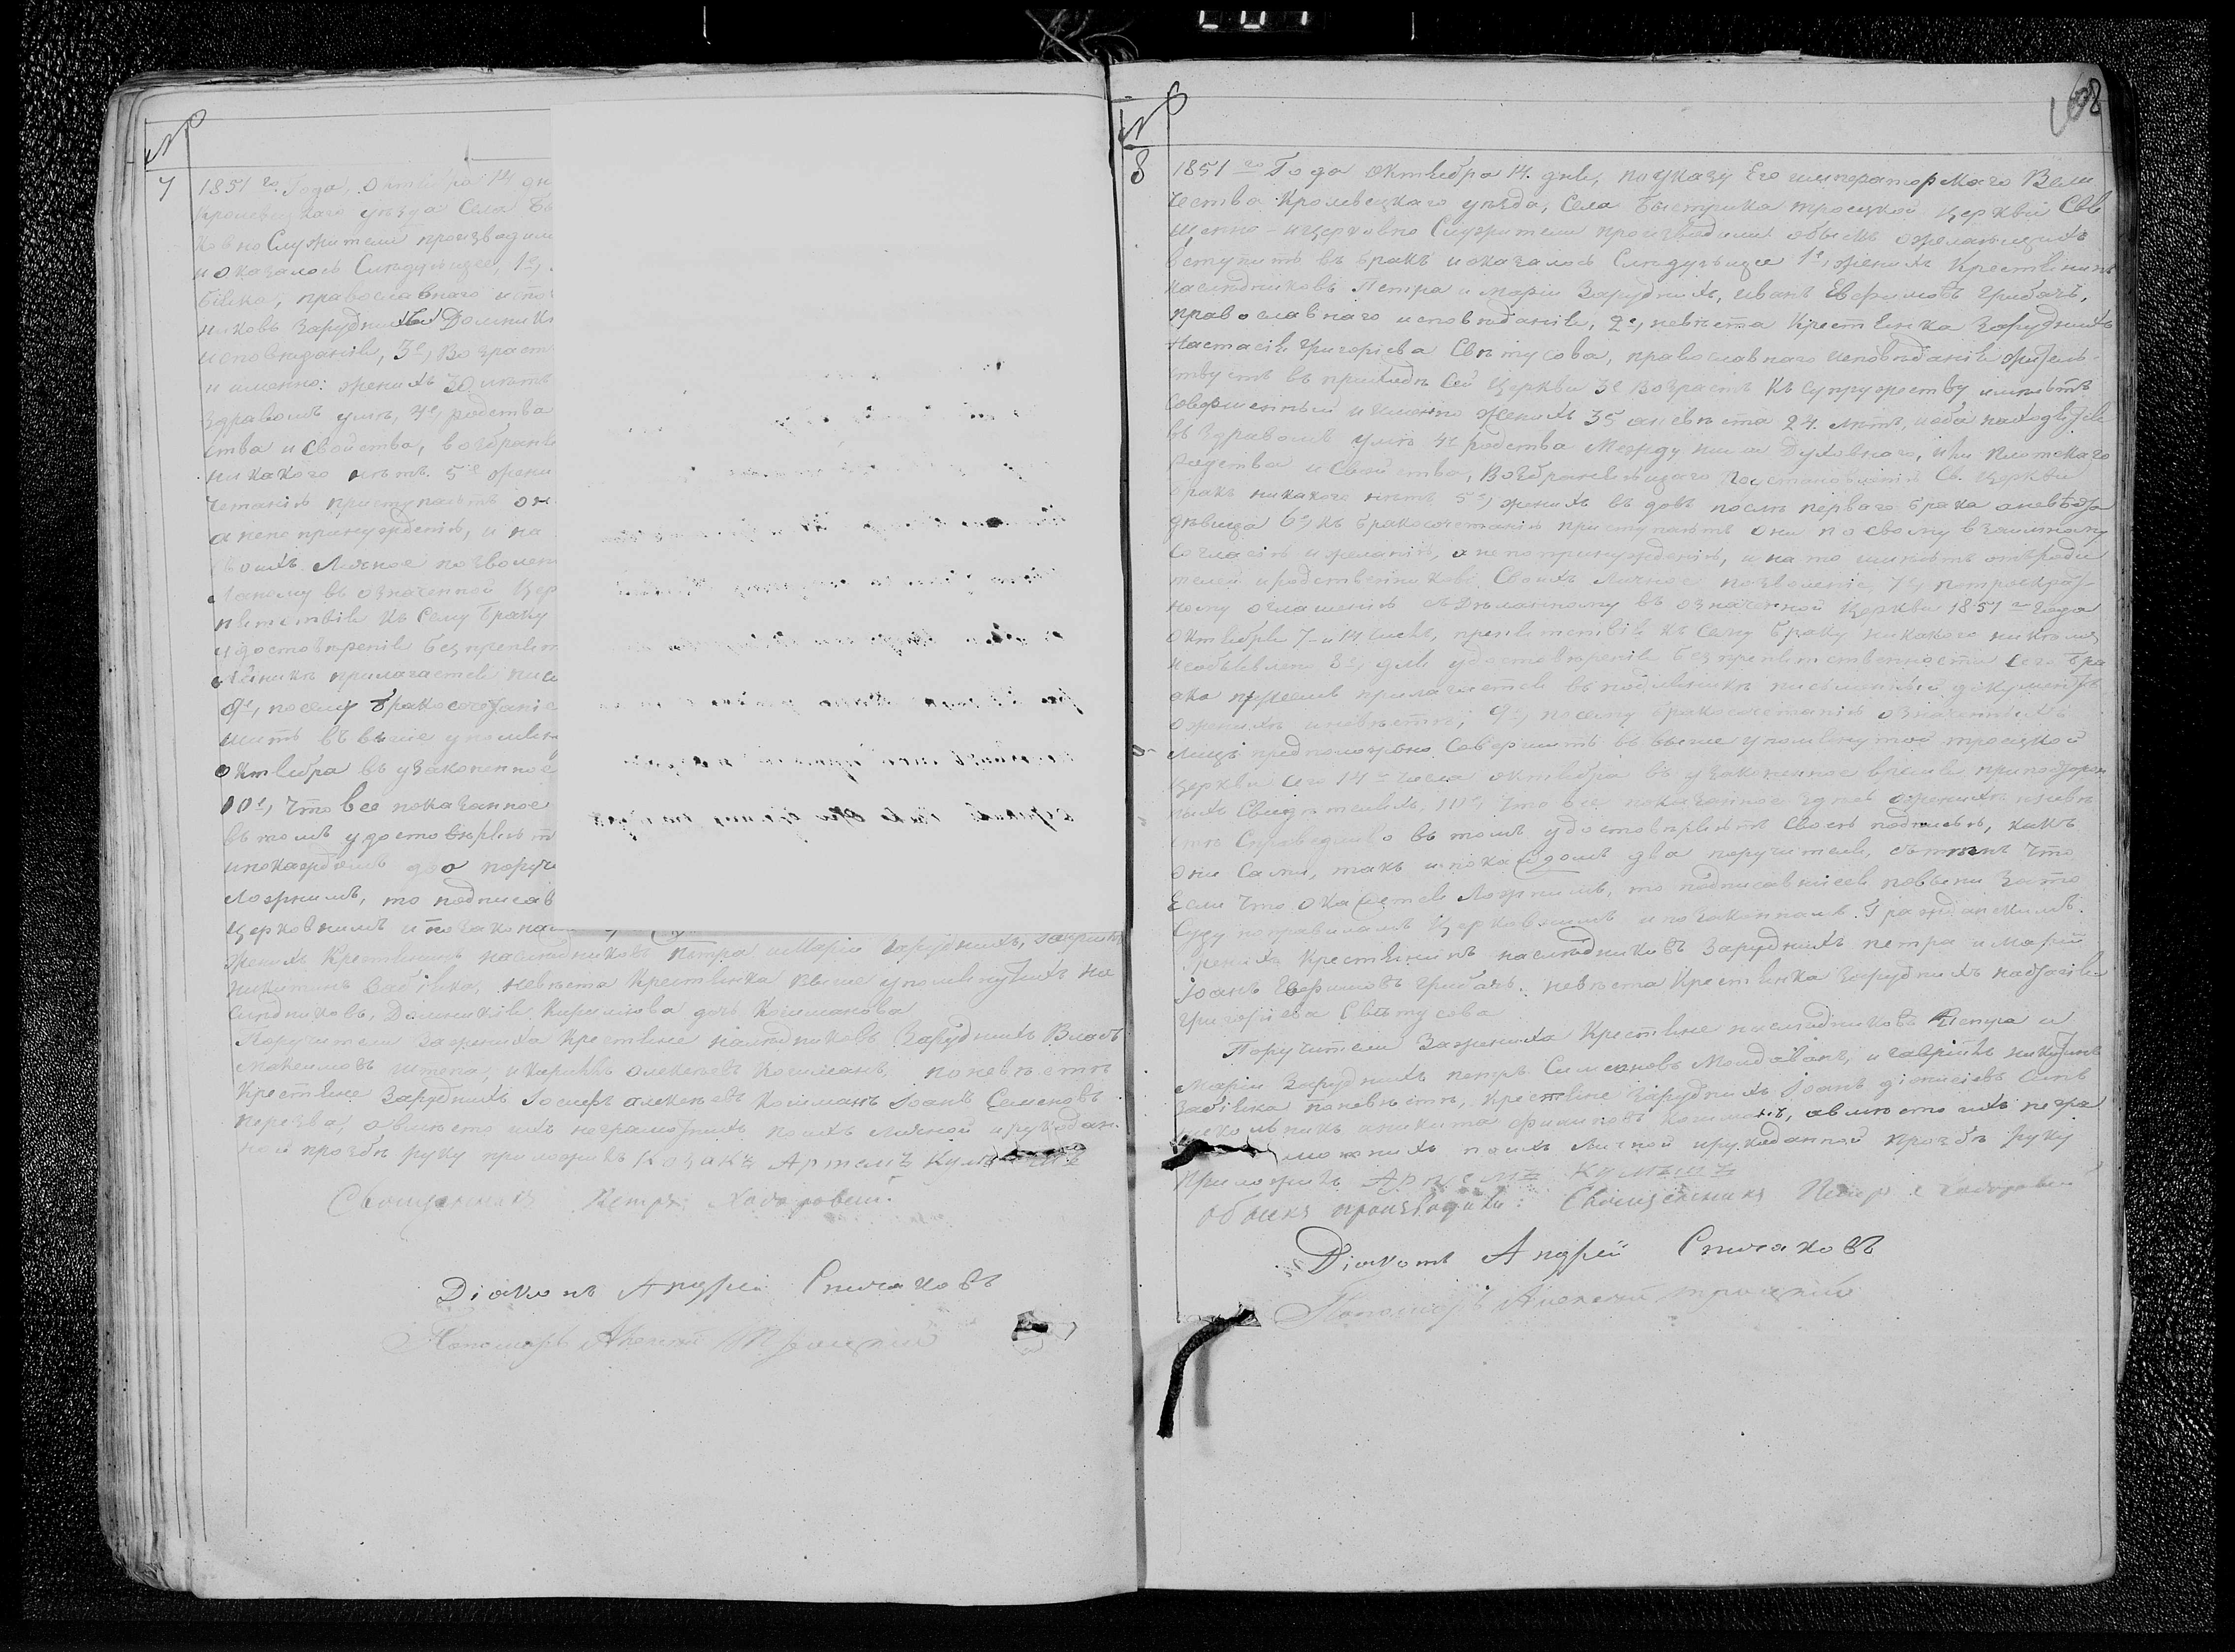 №
7
1851 го Года, Октября 14 дн
Кролевецкаго уѣзда Села Бы
ковно Служители производили
и оказалось Слѣдующее, 1е,
біяка, православнаго испо
никовъ Зарудныхъ Домники
исповѣданія, 3е, Возрастъ
и именно: женихъ 30 лѣтъ
здравомъ умѣ, 4е, родства
ства и Свойства, возбраня
никакого нѣтъ. 5е жени
четанію приступаютъ он
а не по принужденію, и на
воихъ Личное позволен
ланому въ означенной Цер
пятствія къ Сему браку
удостовѣренія безпрепят
линникъ прилагается пис
9е, посему бракосочетаніе
шить въ выше упомян
октября въ узаконенное
10е, Что все показанное
въ томъ удостовѣряютъ
и по каждомъ два поручи
Ложнымъ, то подписав
Церковнымъ и по закона
женихъ Крестьянинъ наслѣдниковъ Петра и Маріи Зарудныхъ, Гавріилъ
Никитинъ Забіяка, невѣста Крестьянка выше упомянутыхъ на
слѣдниковъ, Домникія Кирилова дочь Кошманова
Поручители Зажениха Крестьяне наслѣдниковъ Зарудныхъ Власъ
Максимовъ и Кирилъ Алексѣевъ Кошманъ, по невѣстѣ
Крестьяне Зарудныхъ Іосифъ Алексѣевъ Кошманъ Іоанъ Семеновъ
а вмѣсто ихъ неграмотныхъ по ихъ Личной и рукодан
ной прозбѣ руку приложилъ Козакъ Артемъ
Священникъ Петръ Ходоровскій.
Діаконъ Андрей Спичаковъ
Пономарь Алексей Троицкій
№
8
1851 го Года Октября 14. дня, по указу Его императорскаго Вели
чества Кролевецкаго уѣзда, Села Быстрика троицкой Церкви Свя
щенно-ицерковно Служители производили обыскъ о желающихъ
вступить въ бракъ и оказалось Слѣдующее 1е, женихъ Крестьянинъ
наслѣдниковъ Петра и Маріи Зарудныхъ, иванъ Евфимовъ Грибачъ,
православнаго исповѣданія, 2е, невѣста Крестьянка Зарудныхъ
Настасія Григоріева Свѣтусова, православнаго исповѣданія житель
ствуетъ въ приходѣ Сей Церкви 3е Возрастъ къ супружеству имѣютъ
Совершенный и именно женихъ 35 а невѣста 24. лѣтъ, и оба находятся
въ здравомъ умѣ 4е родства между ними Духовнаго, или Плотскаго
родства и Свойства, Возбраняющаго По установленію Св. Церкви
бракъ никакого нѣтъ 5е, женихъ вдовъ послѣ перваго брака а невѣста
дѣвица 6е, къ бракосочетанію приступаютъ они по своему взаимному
Согласію и желанію, а не по принужденію, и на то имѣютъ отъ роди
телей и родственниковъ Своихъ Личное позволеніе, 7е, по троекрат
ному оглашенію сдѣланному въ означенной Церкви 1851 го года
Октября 7 и 14 числъ, препятствія къ Сему браку никакого никѣмъ
необъявлено 8е, для удостовѣренія безпрепятственности сего бра
ка прилагается въ подлинникъ письменный документъ
о женихѣ и невѣстѣ, 9е, по сему бракосочетаніе означенныхъ
Лицъ предположено Совершить въ выше упомянутой троицкой
Церкви Сего 14го числа октября въ узаконенное время при посторон
ныхъ Свидѣтеляхъ. 10е, Что все показанное здѣсь о женихѣ и невѣ
стѣ Справедливо въ томъ удостовѣряютъ Своею подписью, какъ
они Сами, такъ и по каждомъ два поручителя, съ тѣмъ что
Если что окажется Ложнымъ, то подписавшіеся повинны за то
Суду по правиламъ Церковнымъ и по законамъ Гражданскимъ.
Женихъ Крестьянинъ наслѣдниковъ Зарудныхъ Петра и Маріи
Іоанъ Евфимовъ Грибачъ. невѣста Крестьянка Зарудныхъ Настасія
Григоріева Свѣтусова
Поручители Зажениха Крестьяне наслѣдниковъ Петра и
Маріи Зарудныхъ Петръ Симеоновъ Молдованъ, и Гавріилъ Никитинъ
Забіяка по невѣстѣ, Крестьяне Зарудныхъ Іоанъ Діонисіевъ
Никита Кошманъ, а вмѣсто ихъ негра
мотныхъ по ихъ Личной и рукоданной прозбѣ руку
Приложилъ Артемъ
Обыскъ производили: Священникъ Петръ Ходоровскій
Діаконъ Андрей Спичаковъ
Пономарь Алексей Троицкій